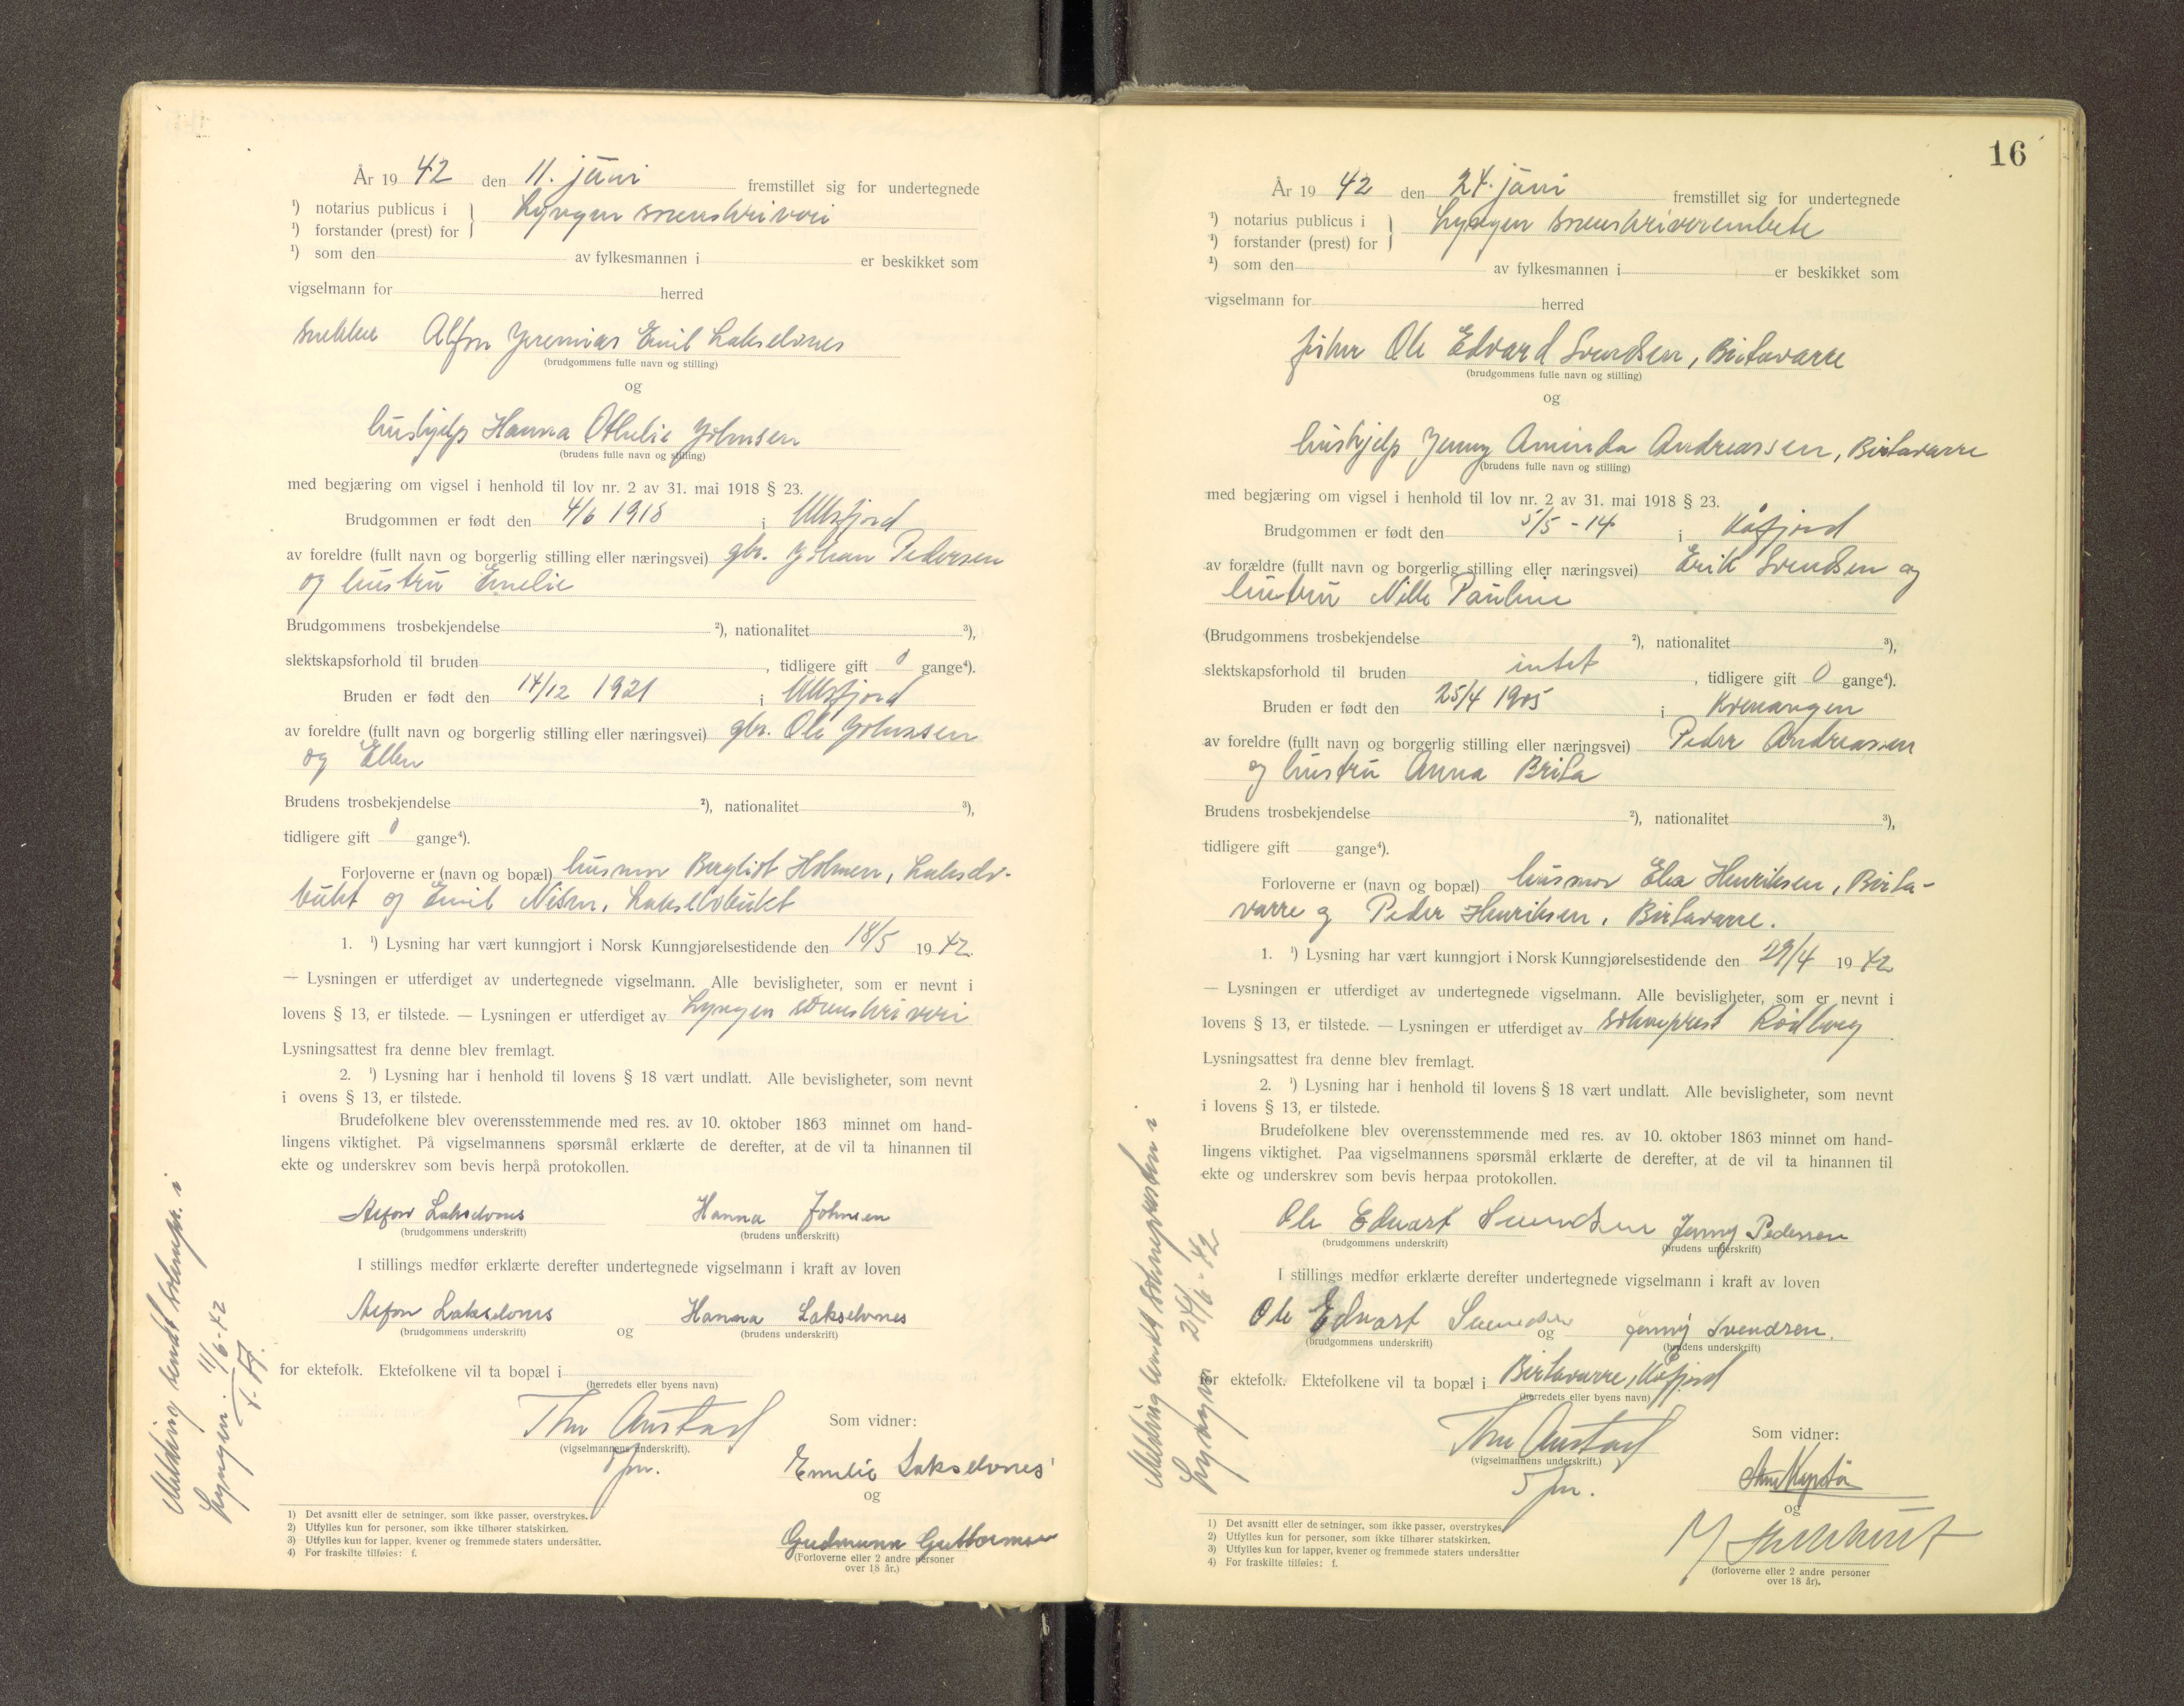 År 19 42 den 11. juni fremstillet sig for undertegnede
¹) notarius publicus i
¹) forstander (prest) for } Lyngen sorenskriveri
¹) som den av fylkesmannen i er beskikket som
vigselmann for herred
snekker Alfon Jeremias Emil Lakselvnes
(brudgommens fulle navn og stilling)
og
hushjelp Hanna Othelie Johnsen
(brudens fulle navn og stilling)
med begjæring om vigsel i henhold til lov nr. 2 av 31. mai 1918 § 23.
Brudgommen er født den 4/6 1918 i Ullsfjord
av foreldre (fullt navn og borgerlig stilling eller næringsvei) gbr. Johan Pedersen
og hustru Emelie
Brudgommens trosbekjendelse ²), nationalitet ³),
slektskapsforhold til bruden , tidligere gift 0 gange⁴).
Bruden er født den 14/12 1921 i Ullsfjord
av foreldre (fullt navn og borgerlig stilling eller næringsvei) gbr. Ole Johnsen
og Ellen
Brudens trosbekjendelse ²), nationalitet ³),
tidligere gift 0 gange⁴).
Forloverne er (navn og bopæl) husmor Bergliot Holmen, Lakselv-
bukt og Emil Nilsen, Lakselvbukt
1. ¹) Lysning har vært kunngjort i Norsk Kunngjørelsestidende den 18/5 19 42.
— Lysningen er utferdiget av undertegnede vigselmann. Alle bevisligheter, som er nevnt i
lovens § 13, er tilstede. — Lysningen er utferdiget av Lyngen sorenskriveri
Lysningsattest fra denne blev fremlagt.
2. ¹) Lysning har i henhold til lovens § 18 vært undlatt. Alle bevisligheter, som nevnt
i ovens § 13, er tilstede.
Brudefolkene blev overensstemmende med res. av 10. oktober 1863 minnet om hand-
lingens viktighet. På vigselmannens spørsmål erklærte de derefter, at de vil ta hinannen til
ekte og underskrev som bevis herpå protokollen.
Alfon Lakselvnes Hanna Johnsen
(brudgommens underskrift) (brudens underskrift)
I stillings medfør erklærte derefter undertegnede vigselmann i kraft av loven
Alfon Lakselvnes og Hanna Lakselvnes
(brudgommens underskrift) (brudens underskrift)
for ektefolk. Ektefolkene vil ta bopæl i
(herredets eller byens navn)
Thv Austad Som vidner:
(vigselmannens underskrift).
fm. Emelie Lakselvnes
og
Gudmunn Guttormsen
(Forloverne eller 2 andre personer
over 18 år.)
1) Det avsnitt eller de setninger, som ikke passer, overstrykes.
2) Utfylles kun for personer, som ikke tilhører statskirken.
3) Utfylles kun for lapper, kvener og fremmede staters undersåtter.
4) For fraskilte tilføies: f.
Melding sendt sokneprs. i
Lyngen. 11/6-42
16
År 19 42 den 24. juni fremstillet sig for undertegnede
¹) notarius publicus i
¹) forstander (prest) for } Lyngen sorenskriverembete
¹) som den av fylkesmannen i er beskikket som
vigselmann for herred
fisker Ole Edvard Svendsen, Birtavarre
(brudgommens fulle navn og stilling)
og
hushjelp Jenny Aminda Andreassen, Birtavarre
(brudens fulle navn og stilling)
med begjæring om vigsel i henhold til lov nr. 2 av 31. mai 1918 § 23.
Brudgommen er født den 5/5 - 14 i Kåfjord
av forældre (fullt navn og borgerlig stilling eller næringsvei) Erik Svendsen og
hustru Nille Pauline
(Brudgommens trosbekjendelse ²), nationalitet ³),
slektskapsforhold til bruden intet , tidligere gift 0 gange⁴).
Bruden er født den 25/4 1905 i Kvenangen
av foreldre (fullt navn og borgerlig stilling eller næringsvei) Peder Andreassen
og hustru Anna Brita
Brudens trosbekjendelse ²), nationalitet ³),
tidligere gift gange⁴).
Forloverne er (navn og bopæl) husmor Elea Henriksen, Birta-
varre og Peder Henriksen, Birtavarre.
1. ¹) Lysning har vært kunngjort i Norsk Kunngjørelsestidende den 29/4 19 42
— Lysningen er utferdiget av undertegnede vigselmann. Alle bevisligheter, som er nevnt i
lovens § 13, er tilstede. — Lysningen er utferdiget av sokneprest Rødberg
Lysningsattest fra denne blev fremlagt.
2. ¹) Lysning har i henhold til lovens § 18 vært undlatt. Alle bevisligheter, som nevnt
i lovens § 13, er tilstede.
Brudefolkene blev overensstemmende med res. av 10. oktober 1863 minnet om hand-
lingens viktighet. Paa vigselmannens spørsmål erklærte de derefter, at de vil ta hinannen til
ekte og underskrev som bevis herpaa protokollen.
Ole Edvart Svendsen Jenny Pedersen
(brudgommens underskrift) (brudens underskrift)
I stillings medfør erklærte derefter undertegnede vigselmann i kraft av loven
Ole Edvart Svendsen og Jenny Svendsen.
(brudgommens underskrift) (brudens underskrift)
for ektefolk. Ektefolkene vil ta bopæl i Birtavarre, Kåfjord
(herredets eller byens navn)
Thv Austad Som vidner:
(vigselmannens underskrift.)
fm.
og
(forloverne eller 2 andre personer
over 18 år).
1) Det avsnitt eller de setninger, som ikke passer, overstrykes.
2) Utfylles kun for personer, som ikke tilhører statskirken.
3) Utfylles kun for lapper, kvener og fremmede staters undersåtter
4) For fraskilte tilføies: f.
Melding sendt soknepresten i
Lyngen 24/6-42